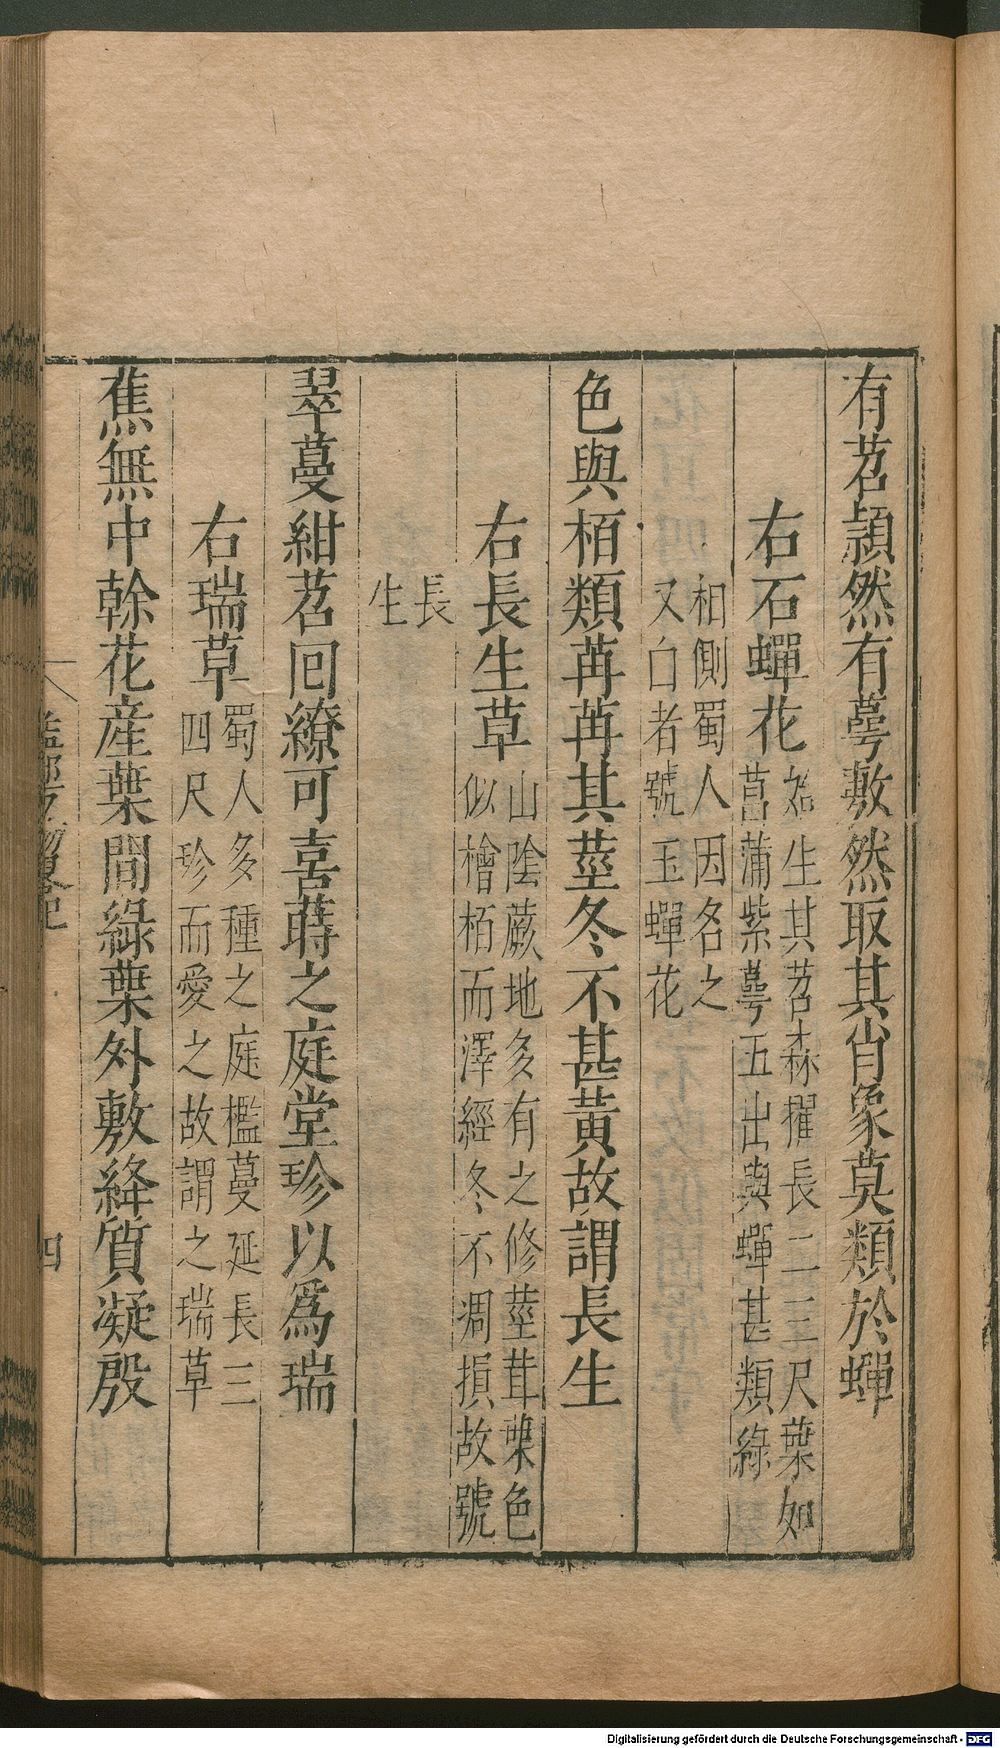 有苕頴然有蕚敷然取其肖象莫類於蟬
右石蟬花始生其苕森擢長二三尺葉如
菖蒲紫蕚五出與蟬甚類綠
相側蜀人因名之
又白者號玉蟬花
色與栢類苒苒其莖冬不甚黃故謂長生
右長生草山陰蕨地多有之修莖茸葉色
似檜栢而澤經冬不凋損故號
長
生
翠蔓紺苕囘繚可喜蒔之庭堂珍以爲瑞
右瑞草蜀人多種之庭檻蔓延長三
四尺珍而愛之故謂之瑞草
蕉無中幹花産葉間綠葉外敷絳質凝殷
益部方物畧記
四
Digitalisierung gefördert durch die Deutsche Forschungsgemeinschaft - DFG